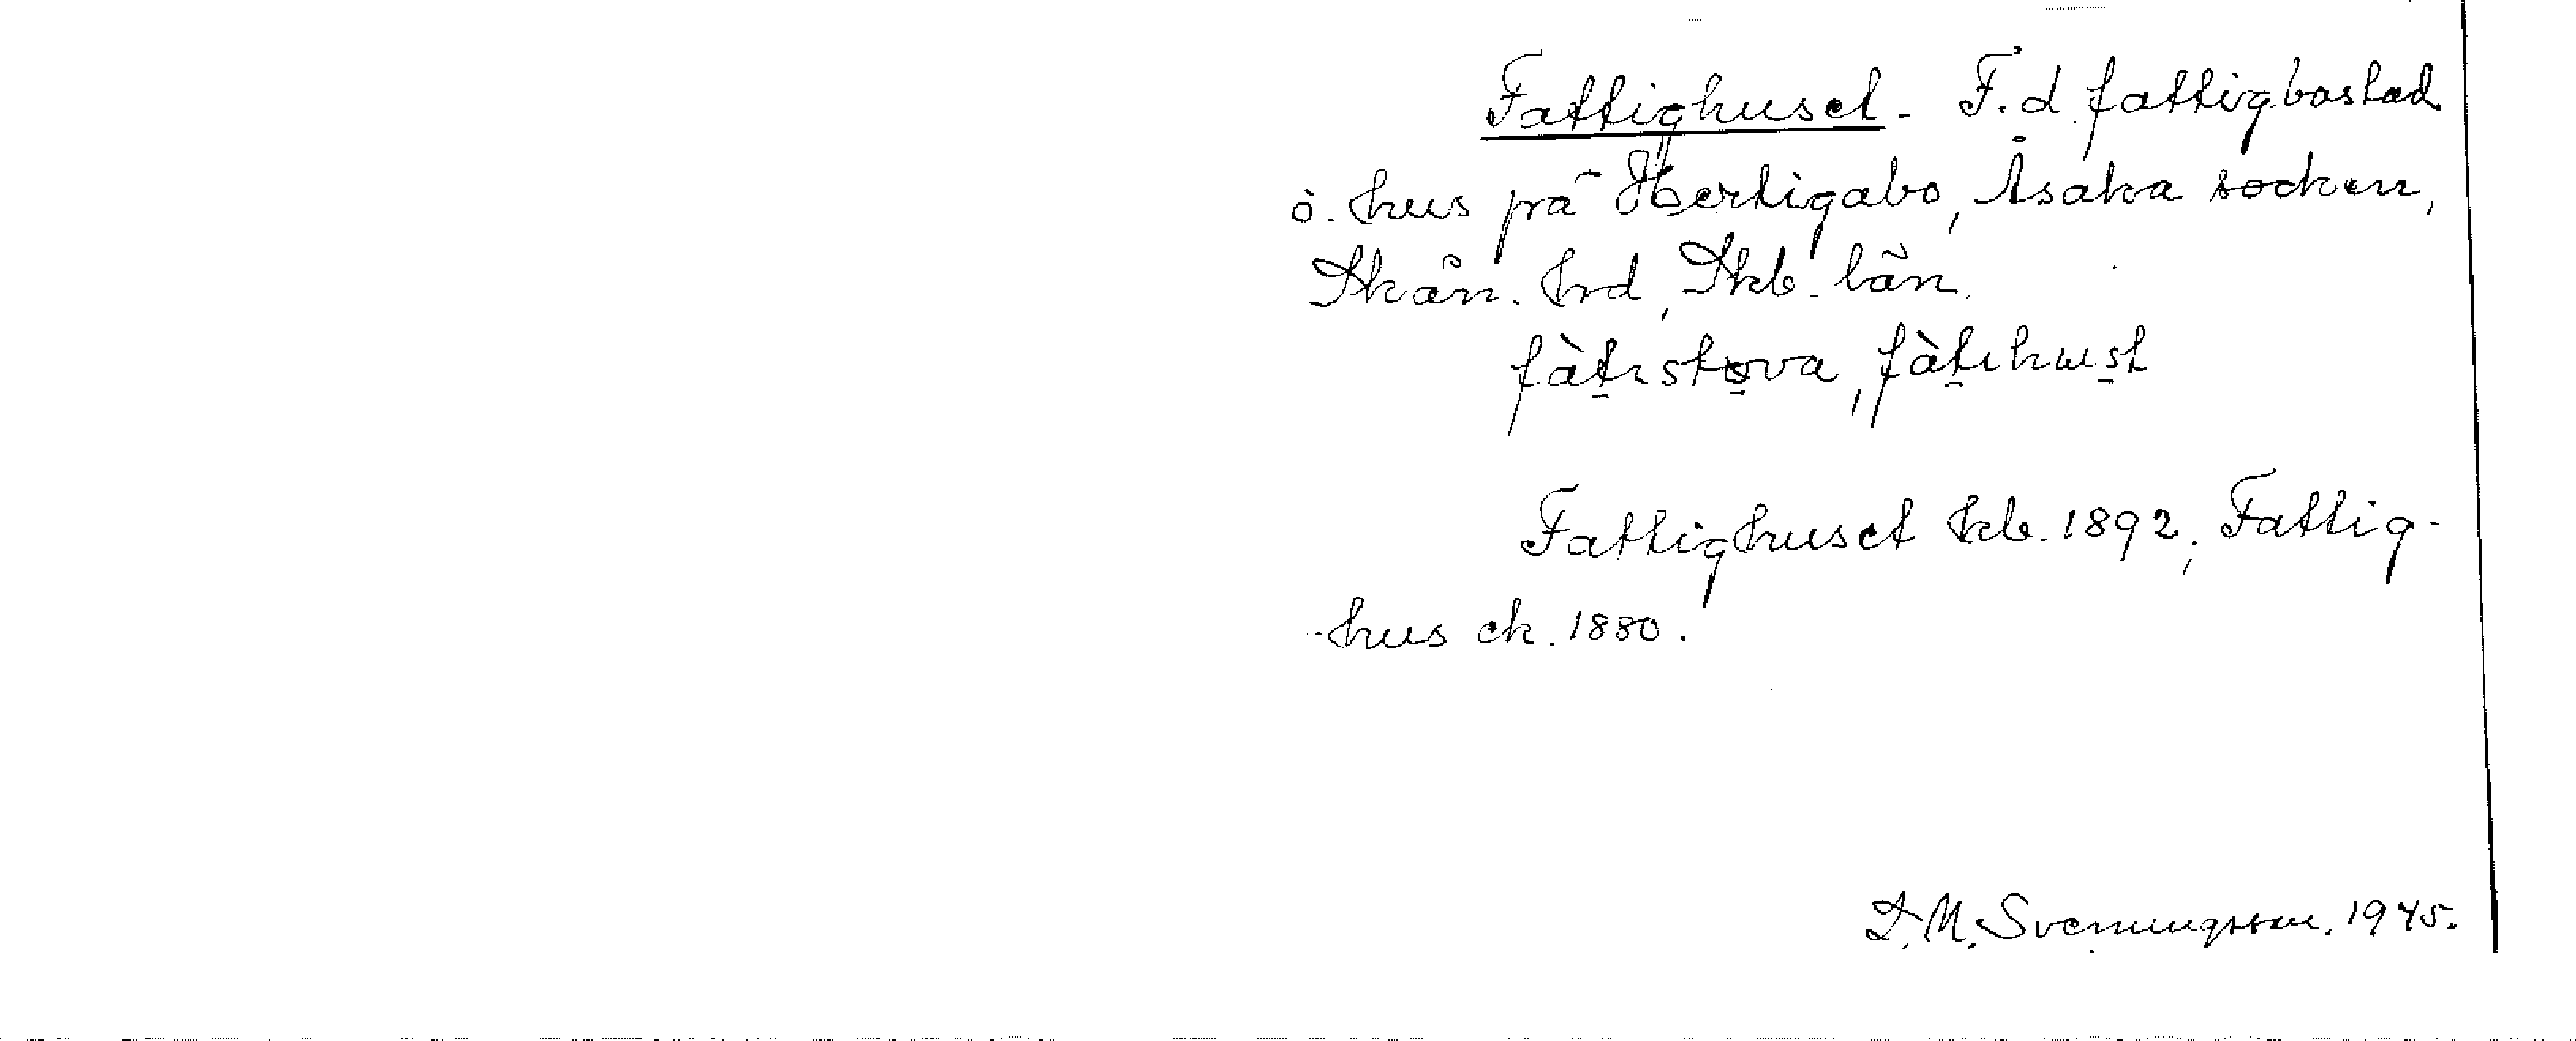 Fattighuset - F.d. fattigbostad
ö. hus på Hertigabo, Åsaka socken,
Skån. hrd, Skb. län.
fàtɩstova, fàtɩhust
Fattighuset hlb. 1892; Fattig-
-hus ek. 1880.
D.M. Svenningsson. 1945.